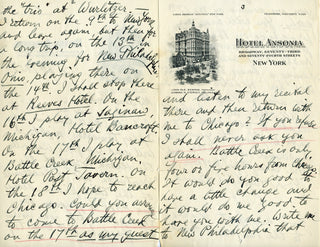 the "trio" at Wurlitzer.
I return on the 9th to New York
and leave again but then for
a long trip, on the 13th in
the evening for New Philadelphia
Ohio, playing there on
the 14th. I shall stop there
at Reeves Hotel. On the
16th I play at Saginaw,
Michigan, Hotel Bancroft.
On the 17th I play at
Battle Creek, Michigan,
Hotel Post Tavern. On
the 18th I hope to reach
Chicago. Could you arrange
to come to Battle Creek
on the 17th as my guest
3
HOTEL ANSONIA
BROADWAY, SEVENTY-THIRD
AND SEVENTY-FOURTH STREETS
NEW YORK
and listen to my recital
there and then return with
me to Chicago? If you refuse
I shall never ask you
again. Battle Creek is only
four or five hours from Chicago.
It would do you good to
have a little change and
it would do me good to
have you with me. Write me
to New Philadelphia that